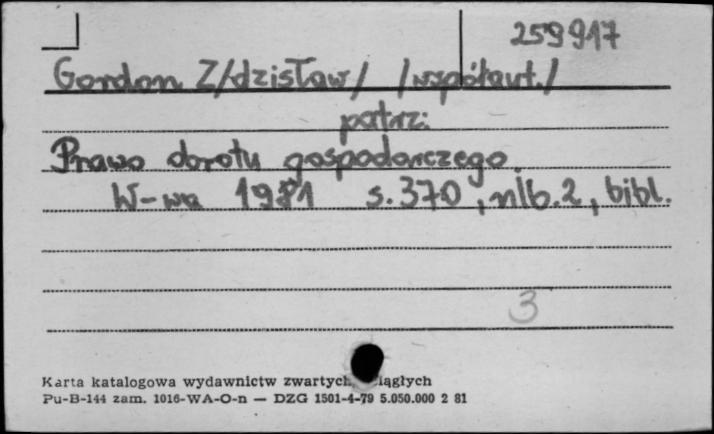 259917
Gordon Z/dzisław/ /współaut./
patrz:
Prawo dorotu gospodarczego.
W-wa 1981 s. 370, nlb. 2, bibl.
3
Karta katalogowa wydawnictw zwartych ciągłych
Pu-B-144 zam. 1016-WA-O-n — DZG 1501-4-79 5.050.000 2 81